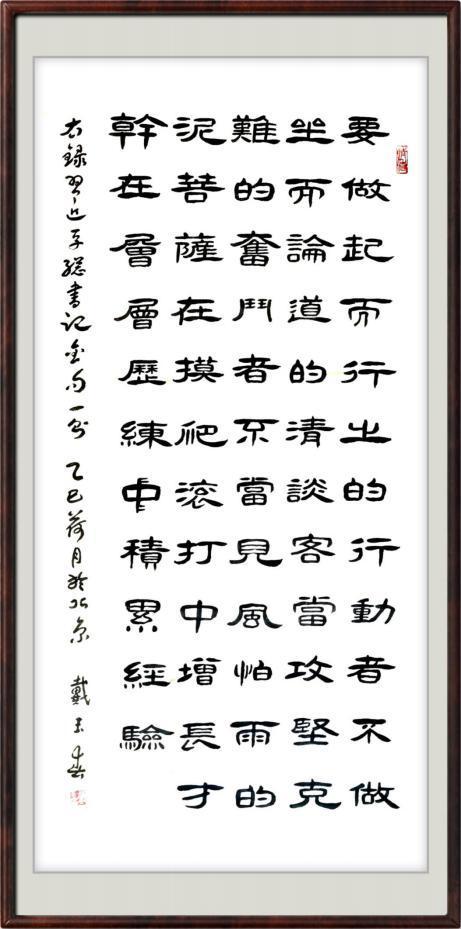 要做起而行之的行動者不做
坐而論道的清談客當攻堅克
難的奮鬥者不當見風怕雨的
泥菩薩在摸爬滾打中增長才
幹在層層歷練中積累經驗
右錄習近平總書記金句一則 乙巳荷月於北京 戴